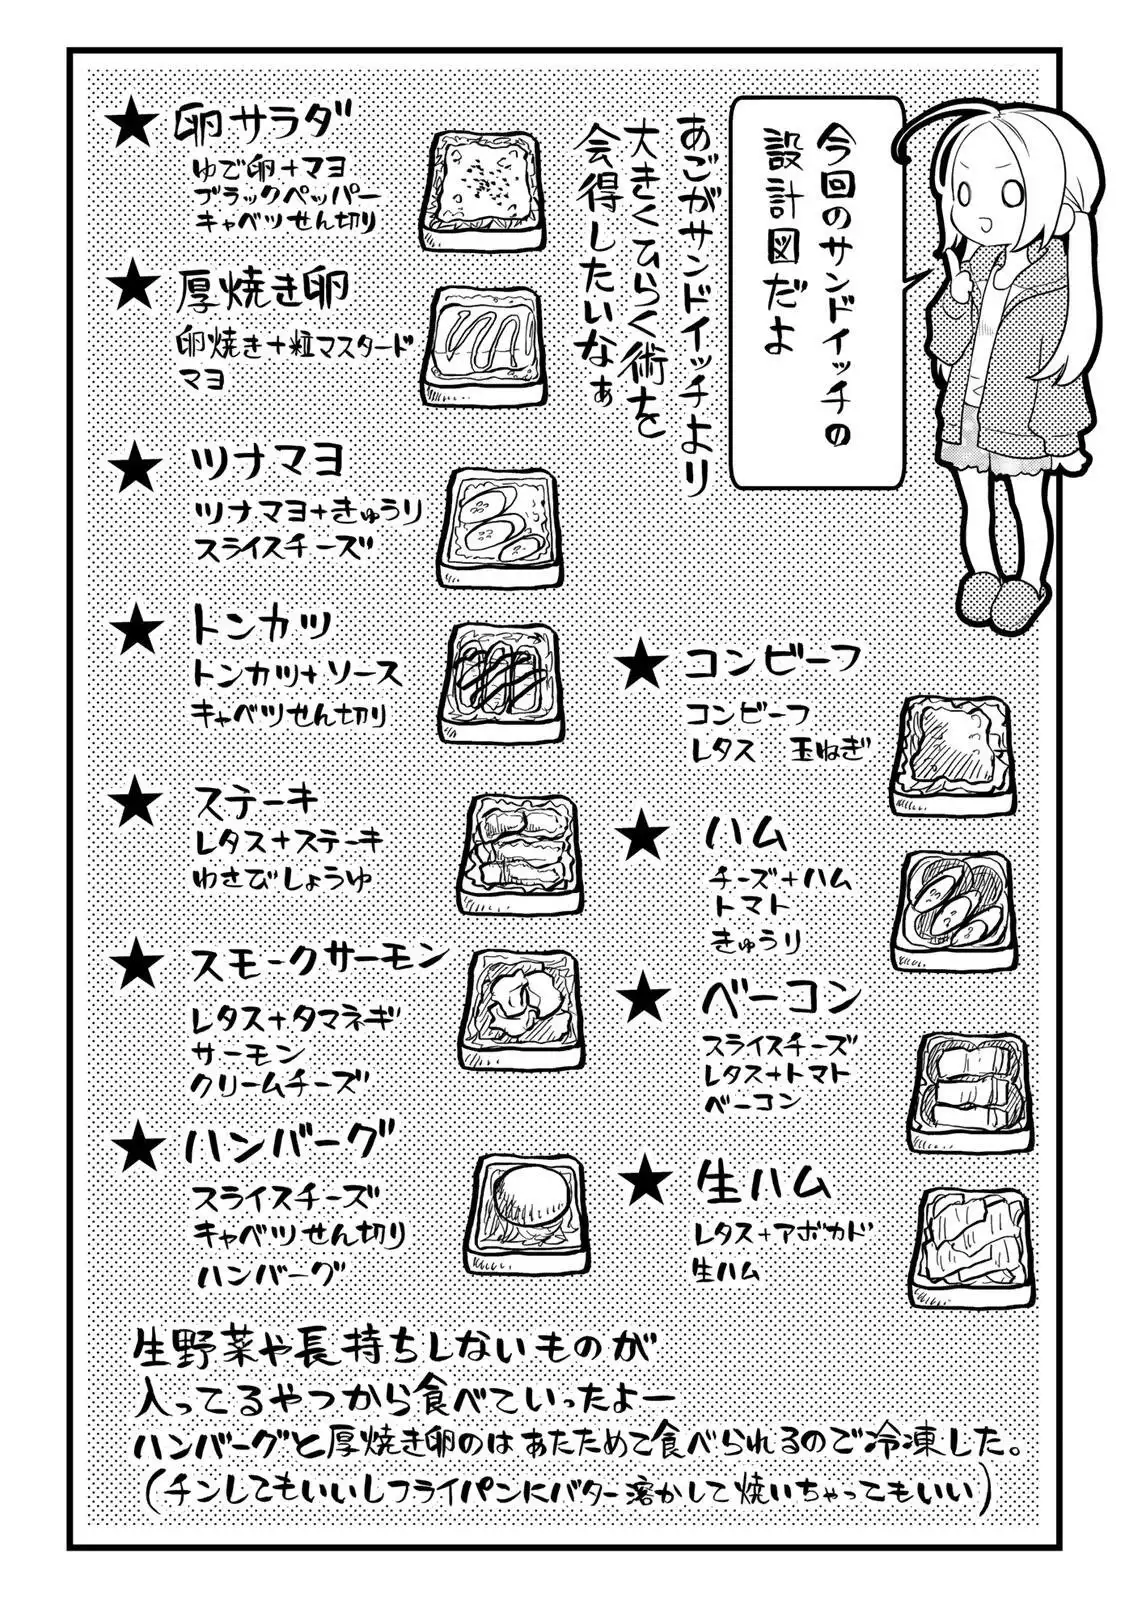 今回のサンドイッチの
設計図だよ
あごがサンドイッチより
大きくひらく術を
会得したいなぁ
★ 卵サラダ
ゆで卵+マヨ
ブラックペッパー
キャベツせん切り
★ 厚焼き卵
卵焼き+粒マスタード
マヨ
★ ツナマヨ
ツナマヨ+きゅうり
スライスチーズ
★ トンカツ
トンカツ+ソース
キャベツせん切り
★ ステーキ
レタス+ステーキ
わさびしょうゆ
★ スモークサーモン
レタス+タマネギ
サーモン
クリームチーズ
★ ハンバーグ
スライスチーズ
キャベツせん切り
ハンバーグ
★ コンビーフ
コンビーフ
レタス 玉ねぎ
★ ハム
チーズ+ハム
トマト
きゅうり
★ ベーコン
スライスチーズ
レタス+トマト
ベーコン
★ 生ハム
レタス+アボカド
生ハム
生野菜や長持ちしないものが
入ってるやつから食べていったよー
ハンバーグと厚焼き卵のはあたためて食べられるので冷凍した。
(チンしてもいいしフライパンにバター溶かして焼いちゃってもいい)